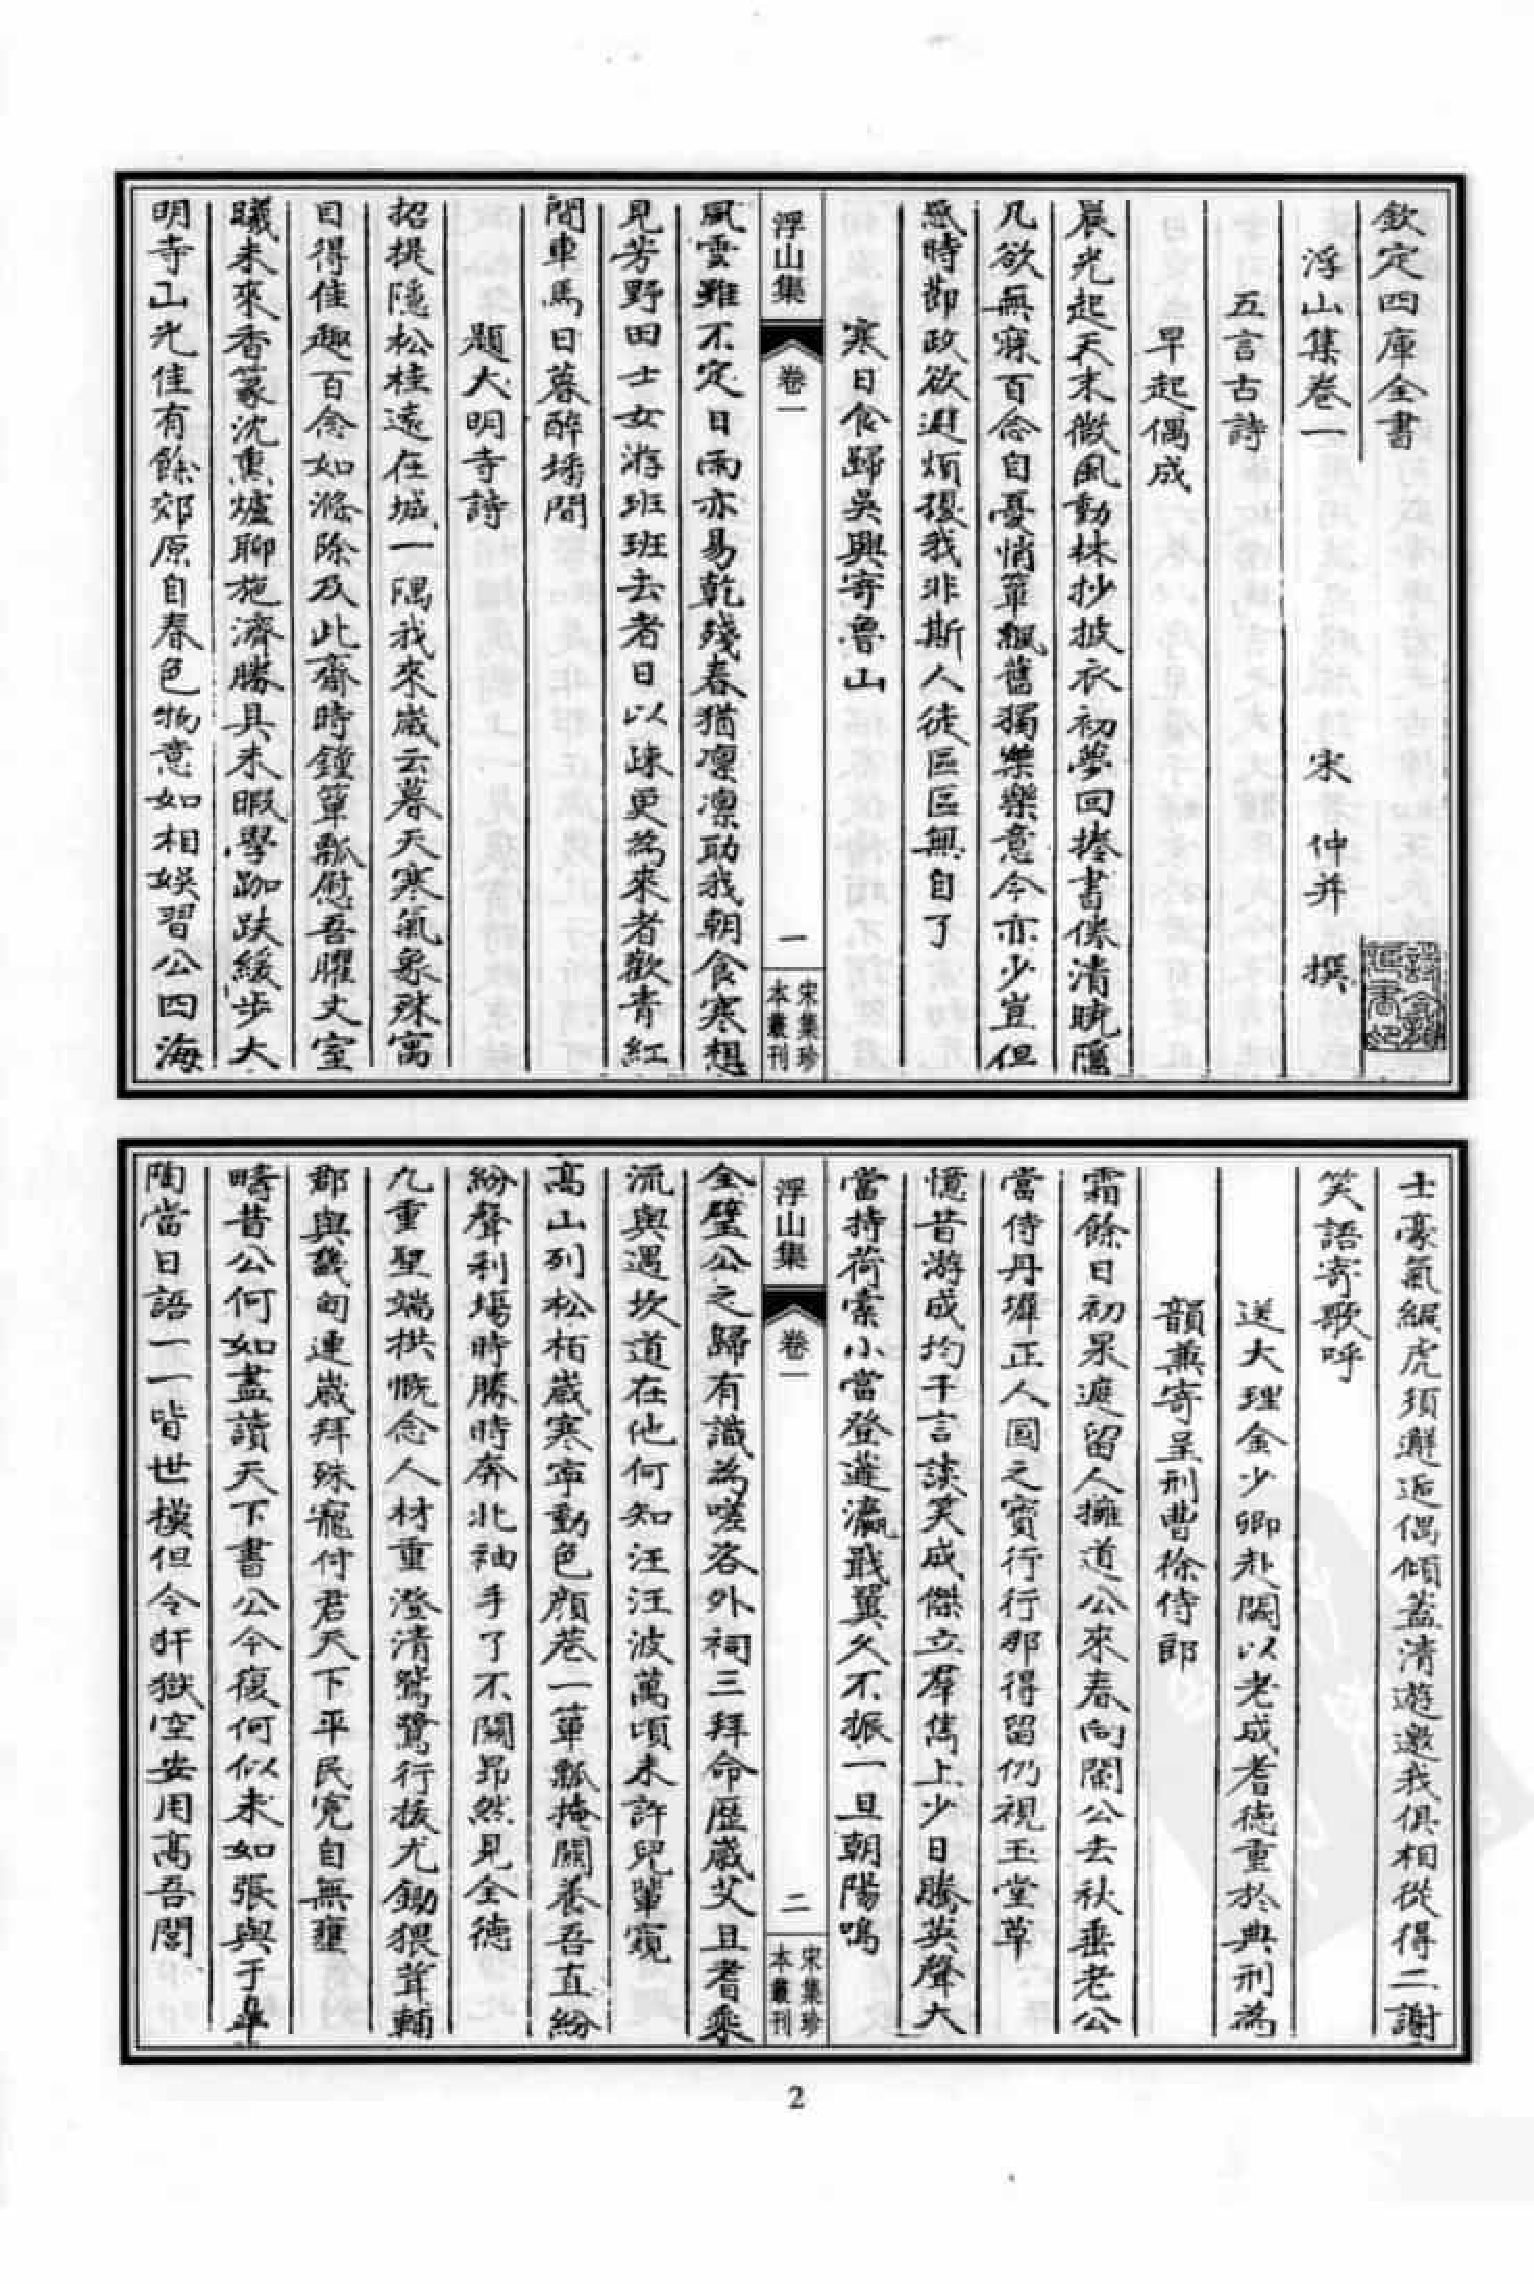 欽定四庫全書
浮山集卷一
宋 仲并 撰
五言古詩
早起偶成
晨光起天末微風動林抄披衣初夢回捲書傃清曉隱
几欲無寐百念自憂悄簞瓢舊獨樂樂意今亦少豈但
感時節政欲避煩擾我非斯人徒區區無自了
寒日食歸吳興寄魯山
浮山集
卷一
一
宋集珍
本叢刊
風雲雖不定日雨亦易乾殘春猶凛凛助我朝食寒想
見芳野田士女游班班去者日以疎更為來者歡青紅
間車馬日暮醉墦間
題大明寺詩
招提隱松桂遠在城一隅我來歲云暮天寒氣象殊寓
目得佳趣百念如滌除及此齋時鐘簞瓢慰吾臞丈室
曦未來香篆沈熏爐聊施濟勝具未暇學跏趺緩步大
明寺山光佳有餘郊原自春色物意如相娛習公四海
士豪氣編虎須邂逅偶傾蓋清遊邀我俱相從得二謝
笑語寄歌呼
送大理金少卿赴闕以老成耆德重於典刑為
韻兼寄呈刑曹徐侍郎
霜餘日初杲遮留人擁道公來春向闌公去秋垂老公
當侍丹墀正人國之寶行行那得留仍視玉堂草
憶昔游成均千言談笑成傑立羣雋上少日騰英聲大
當持荷橐小當登蓬瀛戢翼久不振一旦朝陽鳴
浮山集
卷一
二
宋集珍
本叢刊
全璧公之歸有識為嗟咨外祠三拜命歴歲艾且耆乘
流與遇坎道在他何知汪汪波萬頃未許兒輩窺
高山列松柏歲寒寧動色顔巷一簞瓢掩關養吾直紛
紛聲利塲時勝時奔北袖手了不關昻然見全德
九重聖端拱慨念人材重澄清鵷鷺行拔尤鋤猥茸輔
郡與畿甸連歲拜殊寵付君天下平民寃自無壅
疇昔公何如盡讀天下書公今復何似未如張與于臯
陶當日語一一皆世模但令犴獄空安用高吾閭